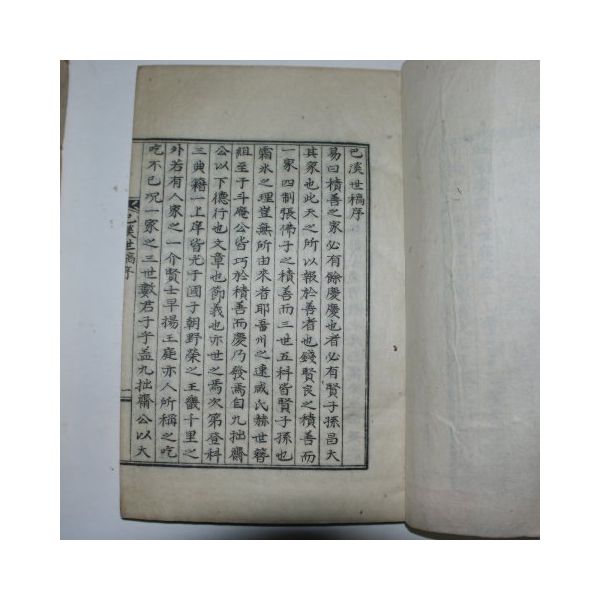 巴溪世稿序
易曰積善之家必有餘慶慶也者必有賢子孫昌大
其家也此天之所以報於善者也錢賢良之積善而
一家四制張佛子之積善而三世五科皆賢子孫也
霜氷之理豈無所由來者耶吾州之逮咸氏赫世簪
組至于斗庵公皆巧於積善而慶乃發焉自九拙齋
公以下德行也文章也節義也亦世之焉次第登科
三典籍一上庠皆光于國子朝野榮之王畿千里之
外若有人家之一介賢士早揚王庭亦人所稱之吃
吃不已况一家之三世數君子乎盖九拙齋公以大
巴溪世稿序
一